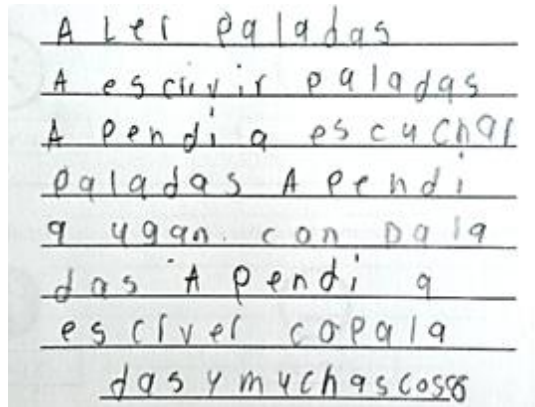 A Ler paladas
A escrivir paladas
A pendi a escuchar
paladas A pendi
a ugan. con pala
das A pendi a
escriver copala
das y muchas cosas